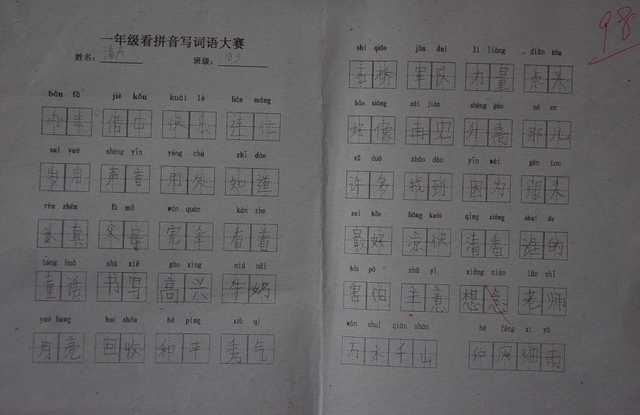 一年级看拼音写词语大赛
姓名: 班级:
bàn fǎ jiè kǒu kuài lè lián máng
办法 借口 快乐 连忙
suì yuè shēng yīn yòng chù zhī dào
岁月 声音 用处 知道
rèn zhēn fù mǔ wán quán kàn zhe
认真 父母 完全 看着
tóng huà shū xiě gāo xìng niú nǎi
童话 书写 高兴 牛奶
yuè liang huí shōu hé píng xiù qì
月亮 回收 和平 秀气
98
shí qiáo jūn duì lì liàng diǎn tóu
石桥 军队 力量 点头
hǎo xiàng zài jiàn shēng gāo nà er
好像 再见 升高 那儿
xǔ duō zhǎo dào yīn wèi gēn tou
许多 找到 因为
zuì hǎo liáng kuài qīng xiāng shuí de
最好 凉快 清香 谁的
hài pà zhǔ yì xiǎng niàn lǎo shī
害怕 主意 想念 老师
wàn shuǐ qiān shān hé fēng xì yǔ
万水千山 和风细雨